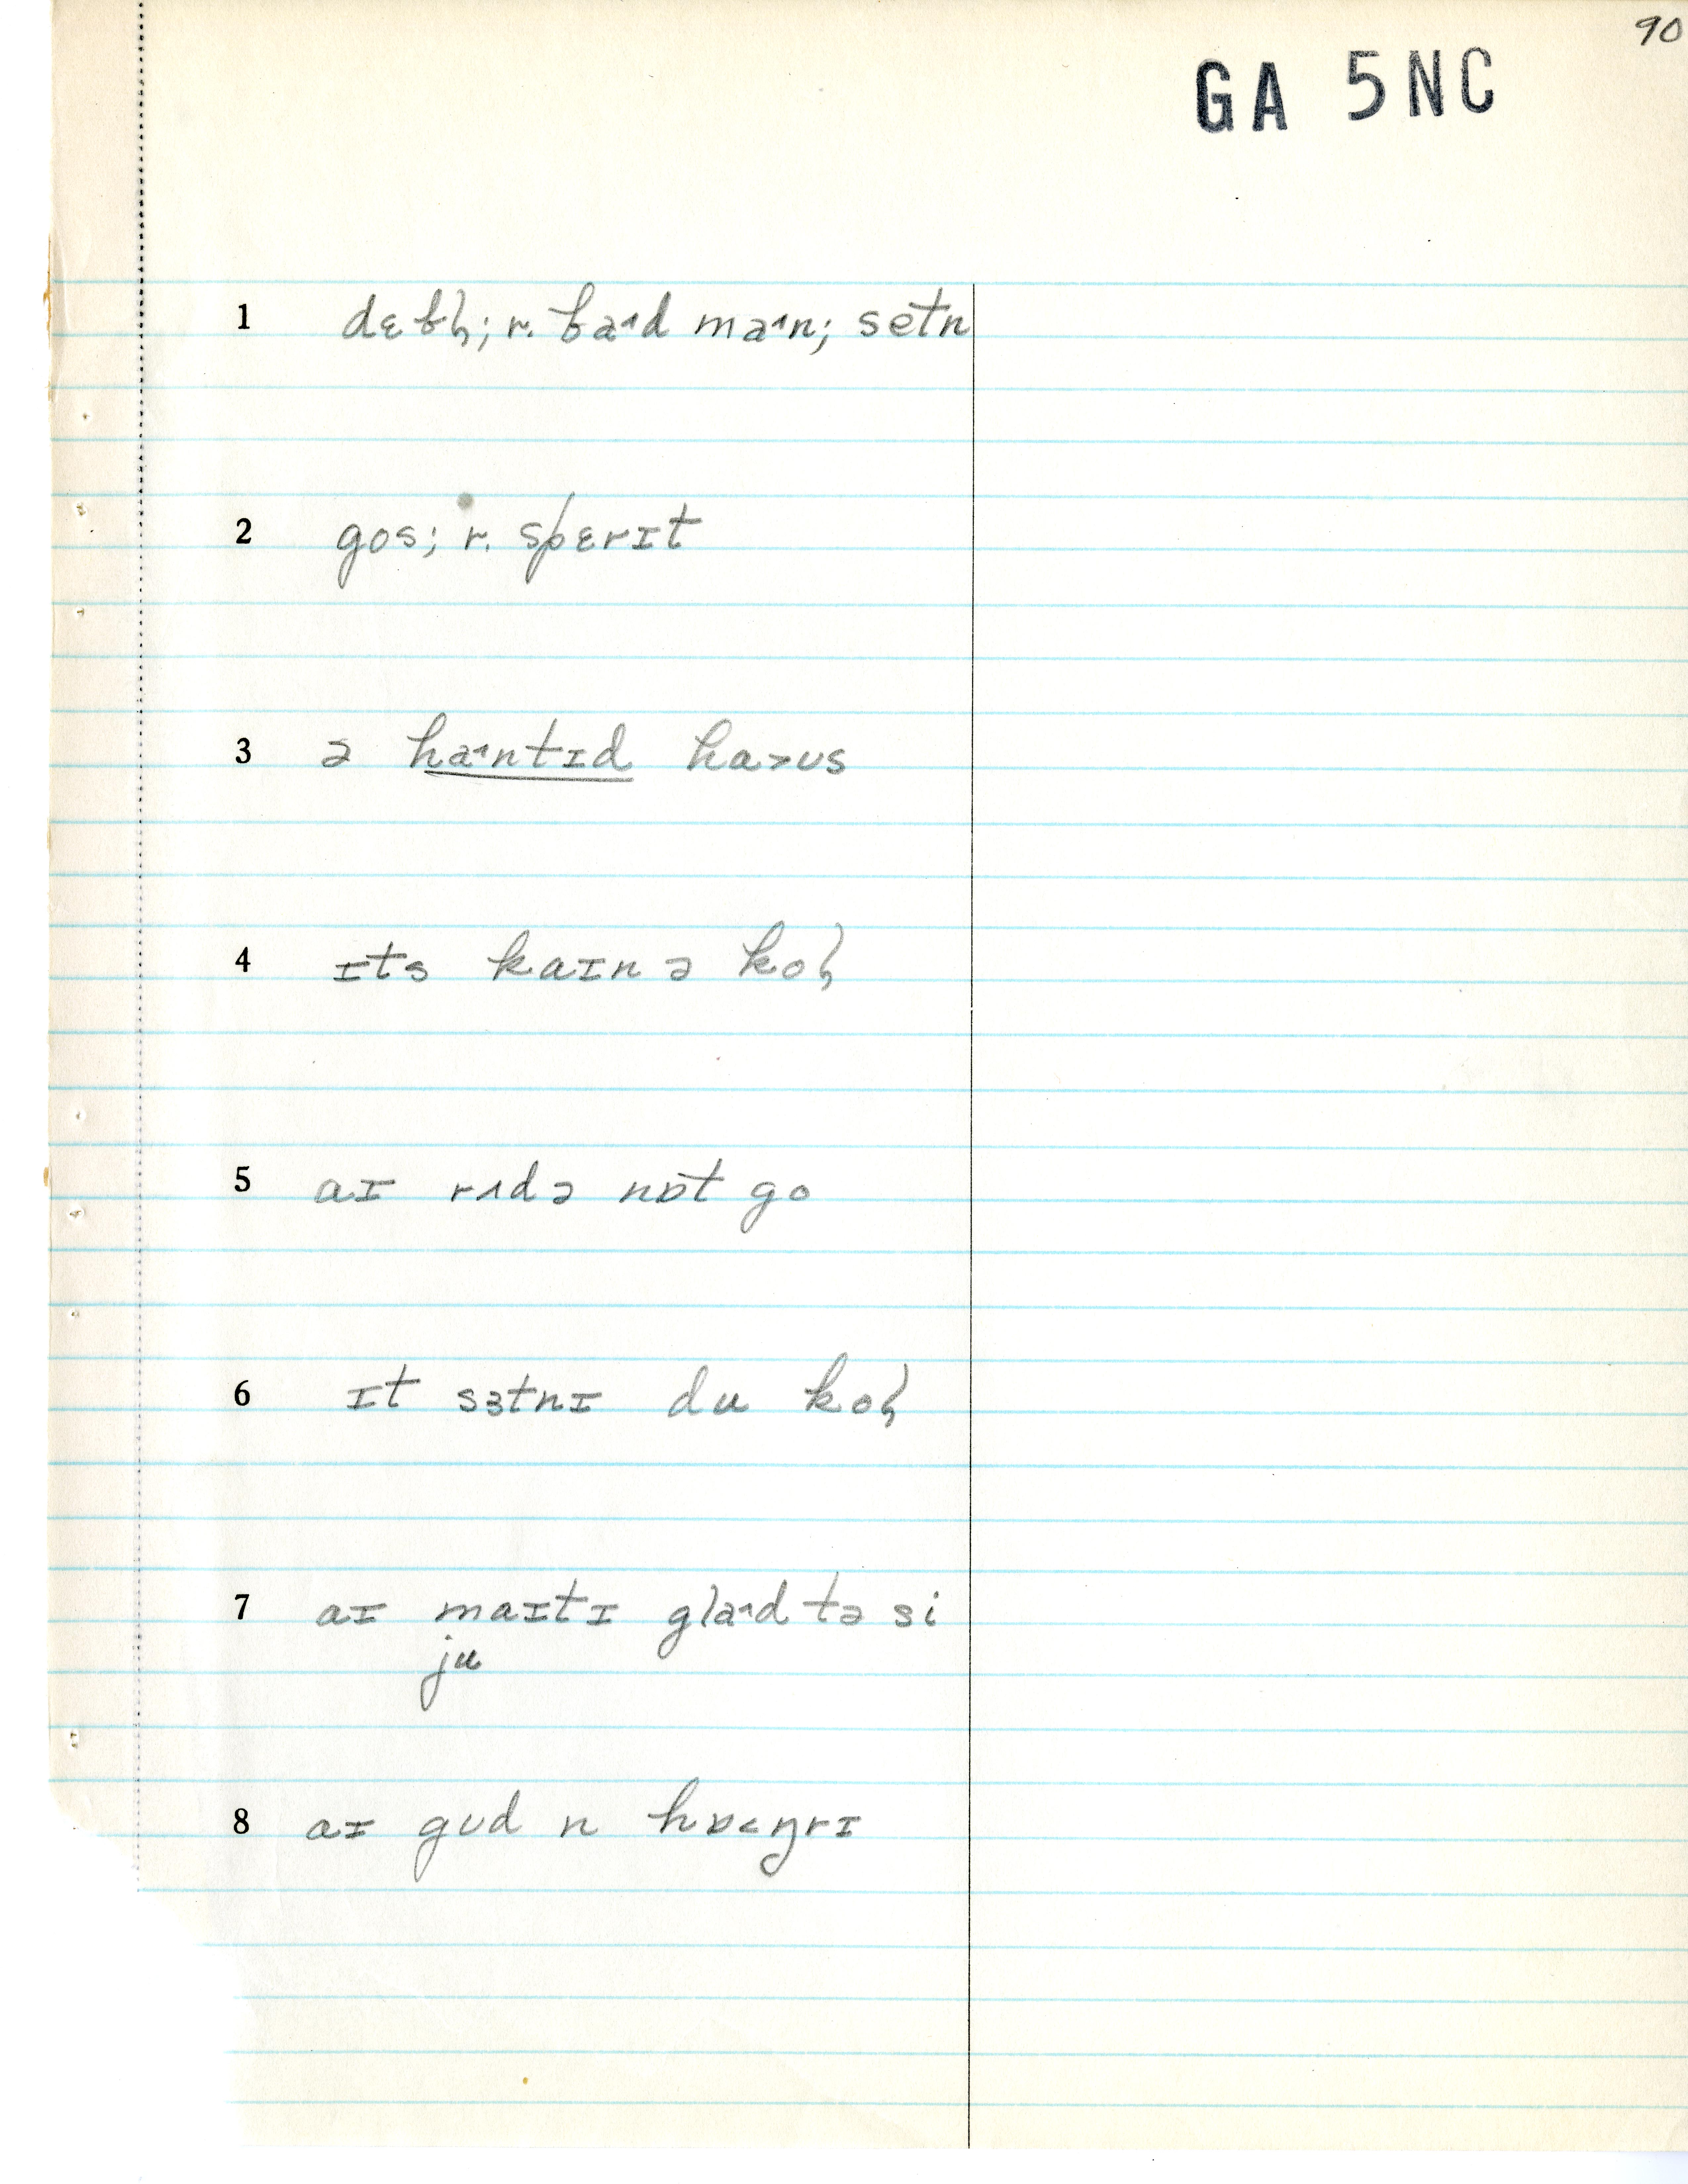 90
GA 5NC
1 dɛβḷ; r. βa˄d ma˄n; setn
2 gos; r. spɛrɪt
3 ə ha˄ntɪd ha>ʊs
4 ɪts kaɪn ə koɫ
5 aɪ rʌdə nɒt go
6 ɪt sɜtnɪ du koɫ
7 aɪ maɪtɪ gla˄d tə si
ju
8 aɪ gʊd n hɒ<ŋrɪ